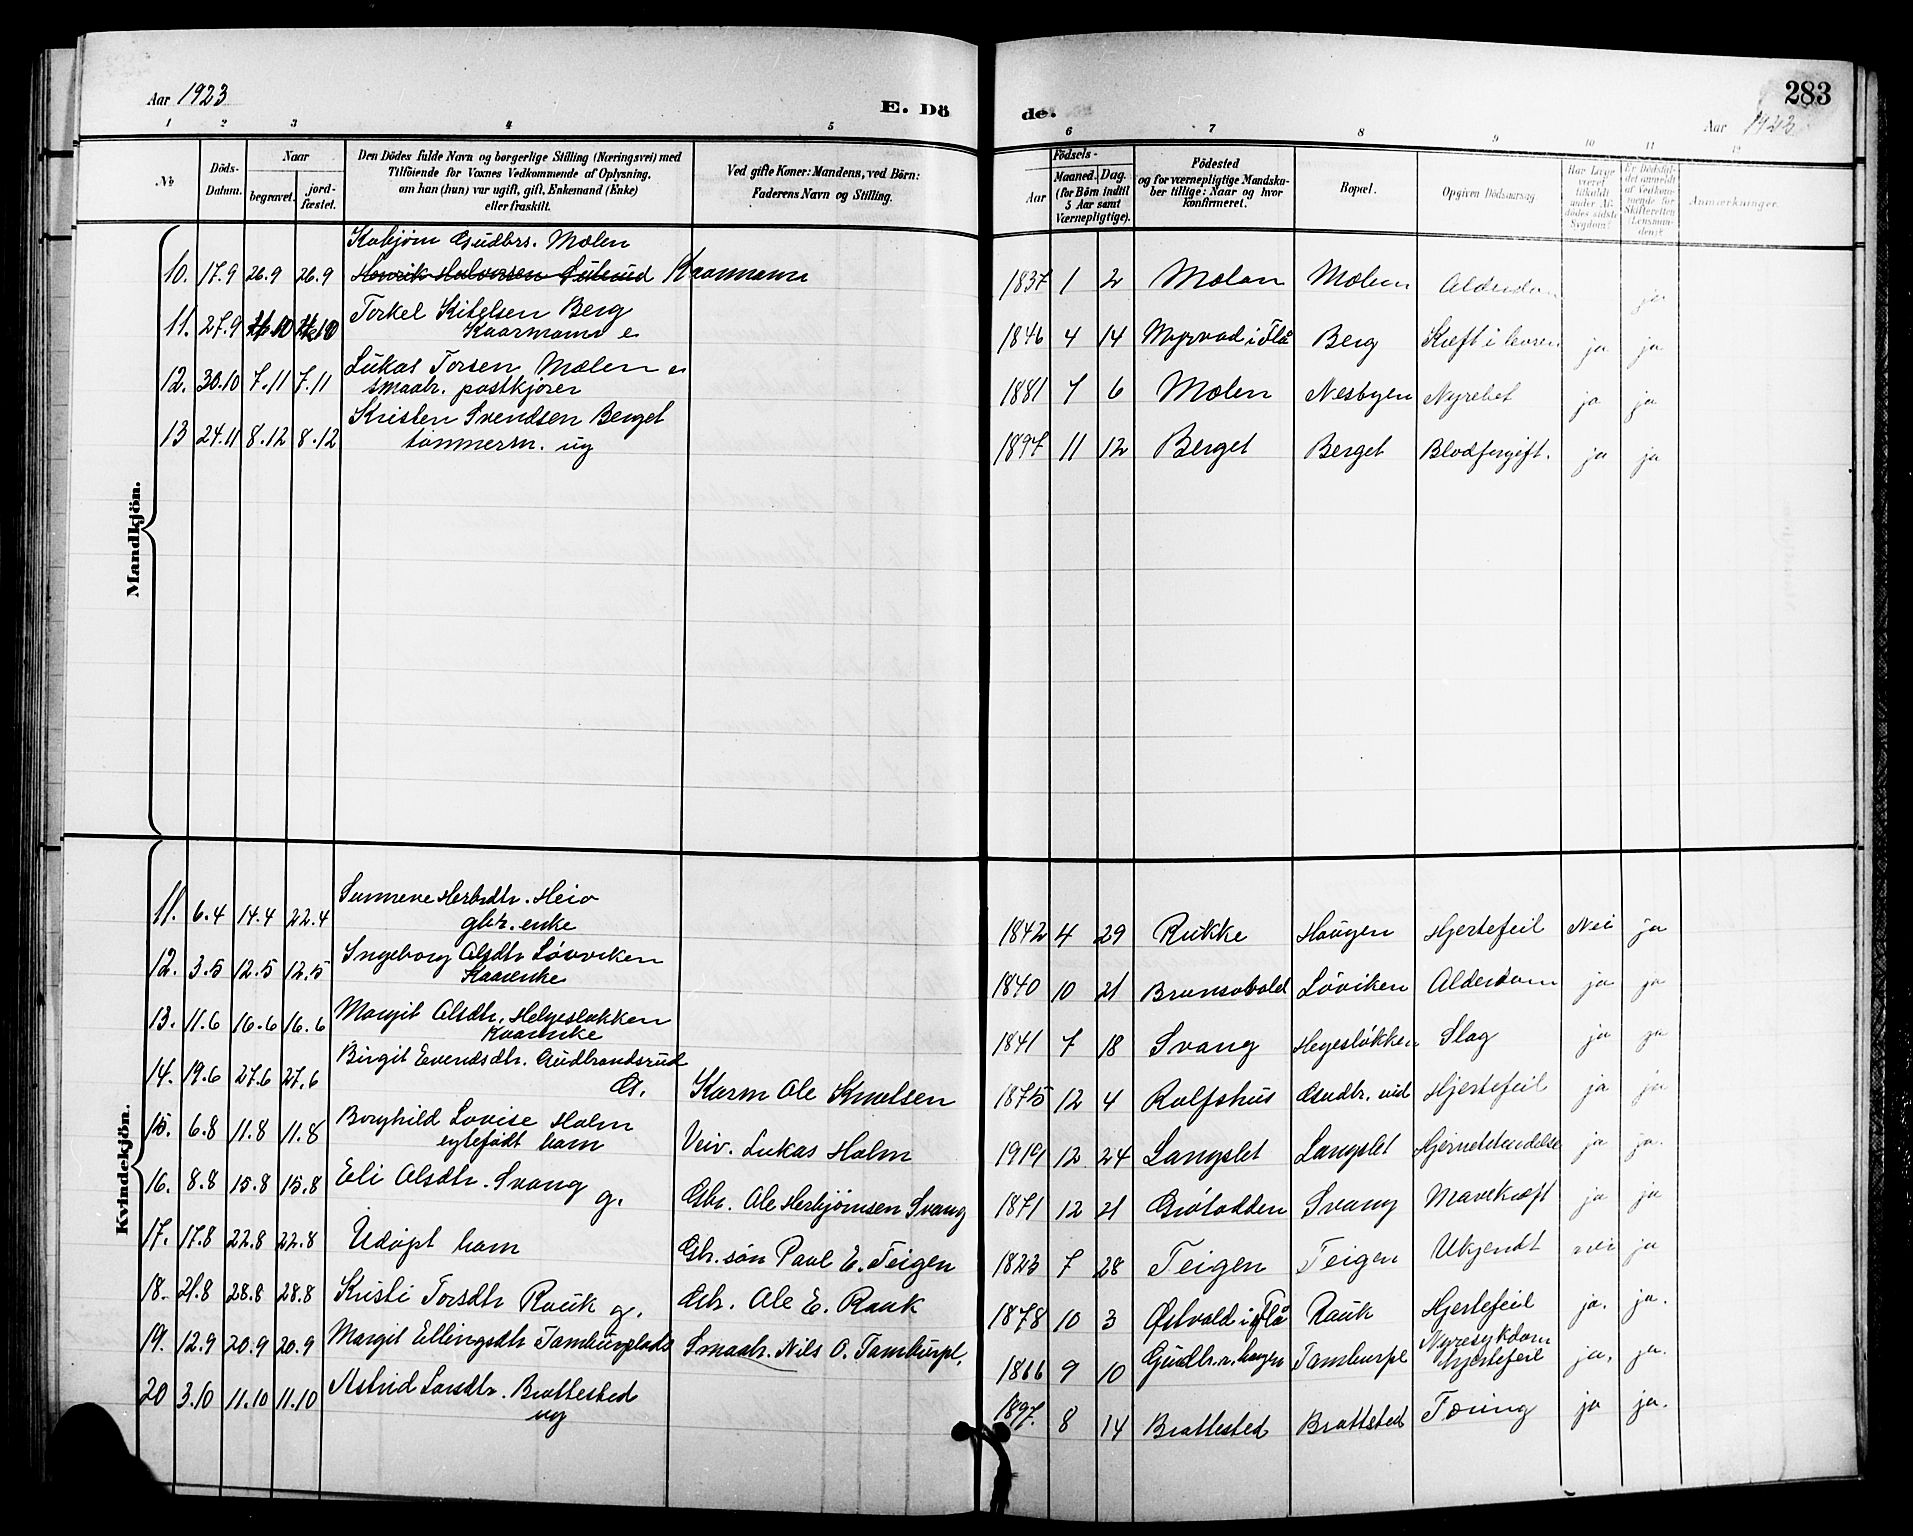 Aar 1923
E. Dö
de.
283
Aar 1923
1 2 3 4 5 6 7 8 9 10 11 12
No
Döds-
Datum.
Naar
begravet.
jord-
fæstet.
Den Dödes fulde Navn og borgerlige Stilling (Næringsvei) med
Tilföiende for Voxnes Vedkommende af Oplysning,
om han (hun) var ugift, gift, Enkemand (Enke)
eller fraskilt.
Ved gifte Koner: Mandens, ved Börn:
Faderens Navn og Stilling.
Födsels-
Aar
Maaned.
Dag.
(for Börn indtil
5 Aar samt
Værnepligtige).
Födested
og for værnepligtige Mandska-
ber tillige: Naar og hvor
konfirmeret.
Bopæl.
Opgiven Dödsaarsag.
Har Læge
været
tilkaldt
under Af-
dödes sidste
Sygdom?
Er Dödsfal-
det anmeldt
af Vedkom-
mende for
Skifteretten
(Lensman-
den)?
Anmærkninger.
Mandkjön.
Gudbrs. Mølen
10. 17.9 26.9 26.9 Kaarmann 1837 1 2 Mølen Mølen Alderdom ja
Torkel Kitelsen Berg
11. 27.9 Kaarmann e 1846 4 14 Myrvod i Flå Berg Kræft i ja ja
Lukas Torsen Mølen e
12. 30.10 7.11 7.11 smaabr. postkjører 1881 7 6 Mølen Nesbyen Nyrebet ja ja
Kristen Svendsen Berget
13 24.11 8.12 8.12 tømmerm. ug 1897 11 12 Berget Berget Blodforgift. ja ja
Kvindekjön.
Sunneve Herbrdtr. Heio
11. 6.4 14.4 22.4 gbr. enke 1842 4 29 Rukke Haugen Hjertefeil Nei ja
Ingeborg Olsdtr Løvviken
12. 3.5 12.5 12.5 Kaarenke 1840 10 21 Bronsvold Løviken Alderdom ja ja
Margit Olsdtr. Helgesløkken
13. 11.6 16.6 16.6 Kaarenke 1841 7 18 Svang Hegesløkken Slag ja ja
Birgit Evendsdtr. Gudbrandsrud
14. 19.6 27.6 27.6 G. Kaarm Ole Knutsen 1875 12 4 Rolfshus Gudbr. rud Hjertefeil ja ja
Borghild Lovise Holm
15. 6.8 11.8 11.8 egtefødt barn Veiv. Lukas Holm 1919 12 24 Langslet Langslet Hjernebetendelse ja ja.
16. 8.8 15.8 15.8 Eli Olsdtr. Svang g. Gbr. Ole Herbjørnsen Svang 1871 12 21 Grøtodden Svang Mavekræft ja ja
17. 17.8 22.8 22.8 Udøpt barn Gbr. søn Paul E. Teigen 1823 7 28 Teigen Teigen Ukjendt nei ja
18. 21.8 28.8 28.8 Kristi Torsdtr Rauk g. Gbr. Ole E. Rauk 1878 10 3 Østvold i Flå Rauk Hjertefeil ja. ja.
Nyresykdom
19. 12.9 20.9 20.9 Margit Ellingsdtr Tamburplads Smaabr. Nils O. Tamburpl. 1866 9 10 Gudbr.r. haugen Tamburpl Hjertefeil ja. ja.
20 3.10 11.10 11.10 Astrid Larsdtr. Brattested 1897. 8 14 Brattested Brattsted Tæring ja ja.
ug